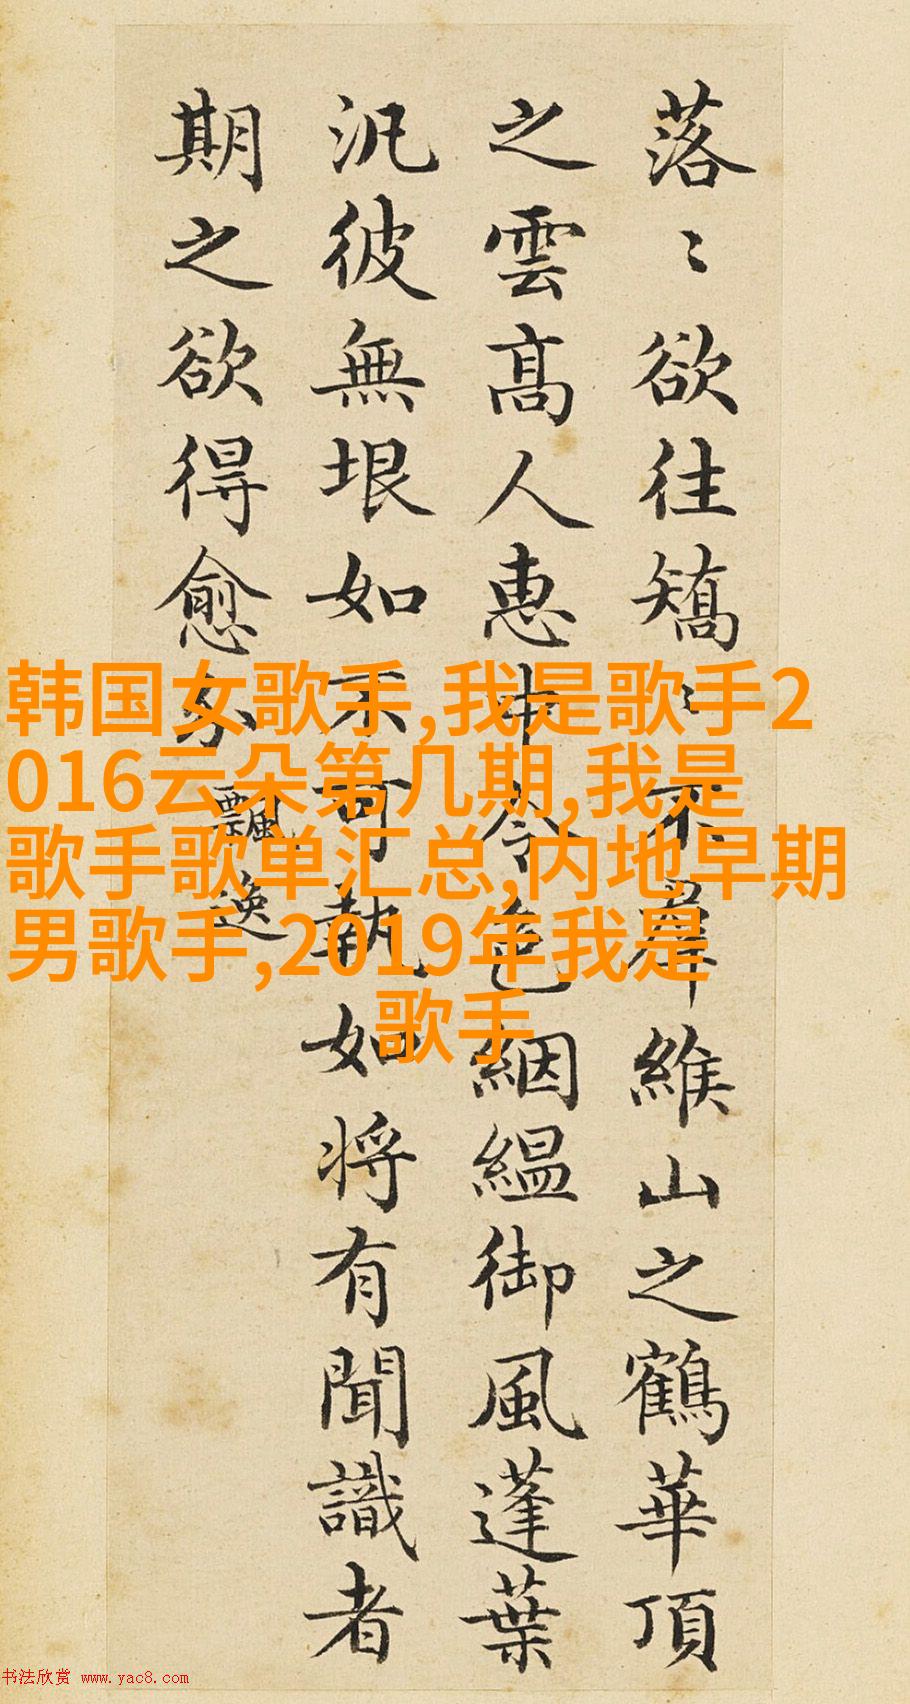 落〻欲往矯〻不羣緱山之鶴華頂
之雲髙人惠中令色絪縕御風蓬葉
汎彼無垠如不可執如将有聞識者
期之欲得愈分
飄逸
韩国女歌手,我是歌手2
016云朵第几期,我是
歌手歌单汇总,内地早期
男歌手,2019年我是
歌手
书法欣赏 www.yac8.com